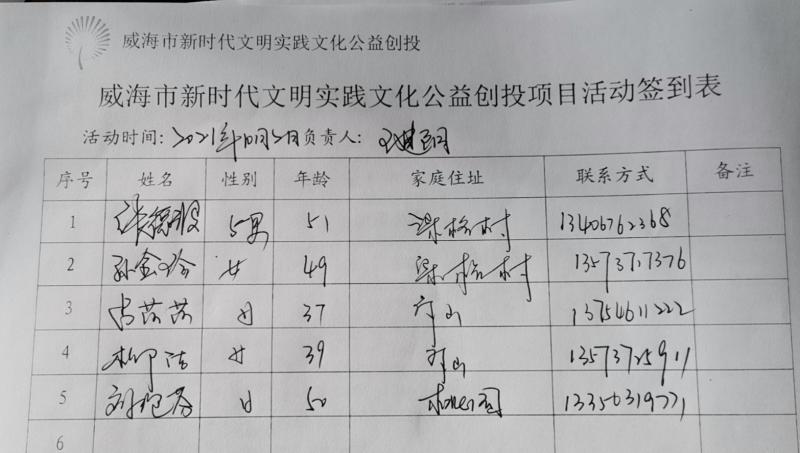 威海市新时代文明实践文化公益创投
威海市新时代文明实践文化公益创投项目活动签到表
活动时间：2021年10月2日负责人：
序号 姓名 性别 年龄 家庭住址 联系方式 备注
1 男 51 梁格村 13406762368
2 孙金玲 女 49 梁格村 13573717376
3 芸芸 女 37 13754611222
4 柳洁 女 39 13573725911
5 刘 女 50 13356319771
6